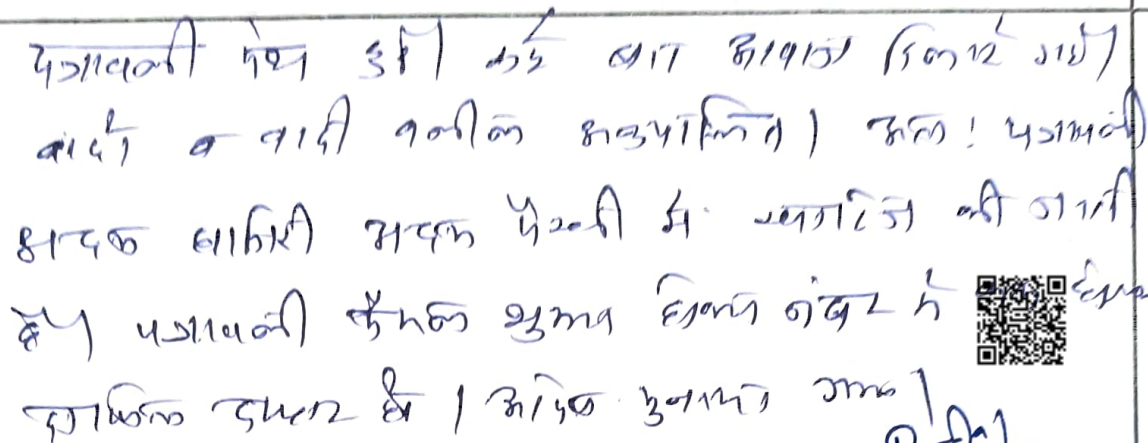 पत्रावली पेश हुई। कई बार आवाज दिलाई गयी।
वादी व वादी वकील अनुपस्थित। अतः पत्रावली
अदम हाजिरी अदम पैरवी में खारिज की जाती
है। पत्रावली फैसल शुमार होकर नंबर से
दाखिल दफ्तर हो। आदेश सुनाया गया।